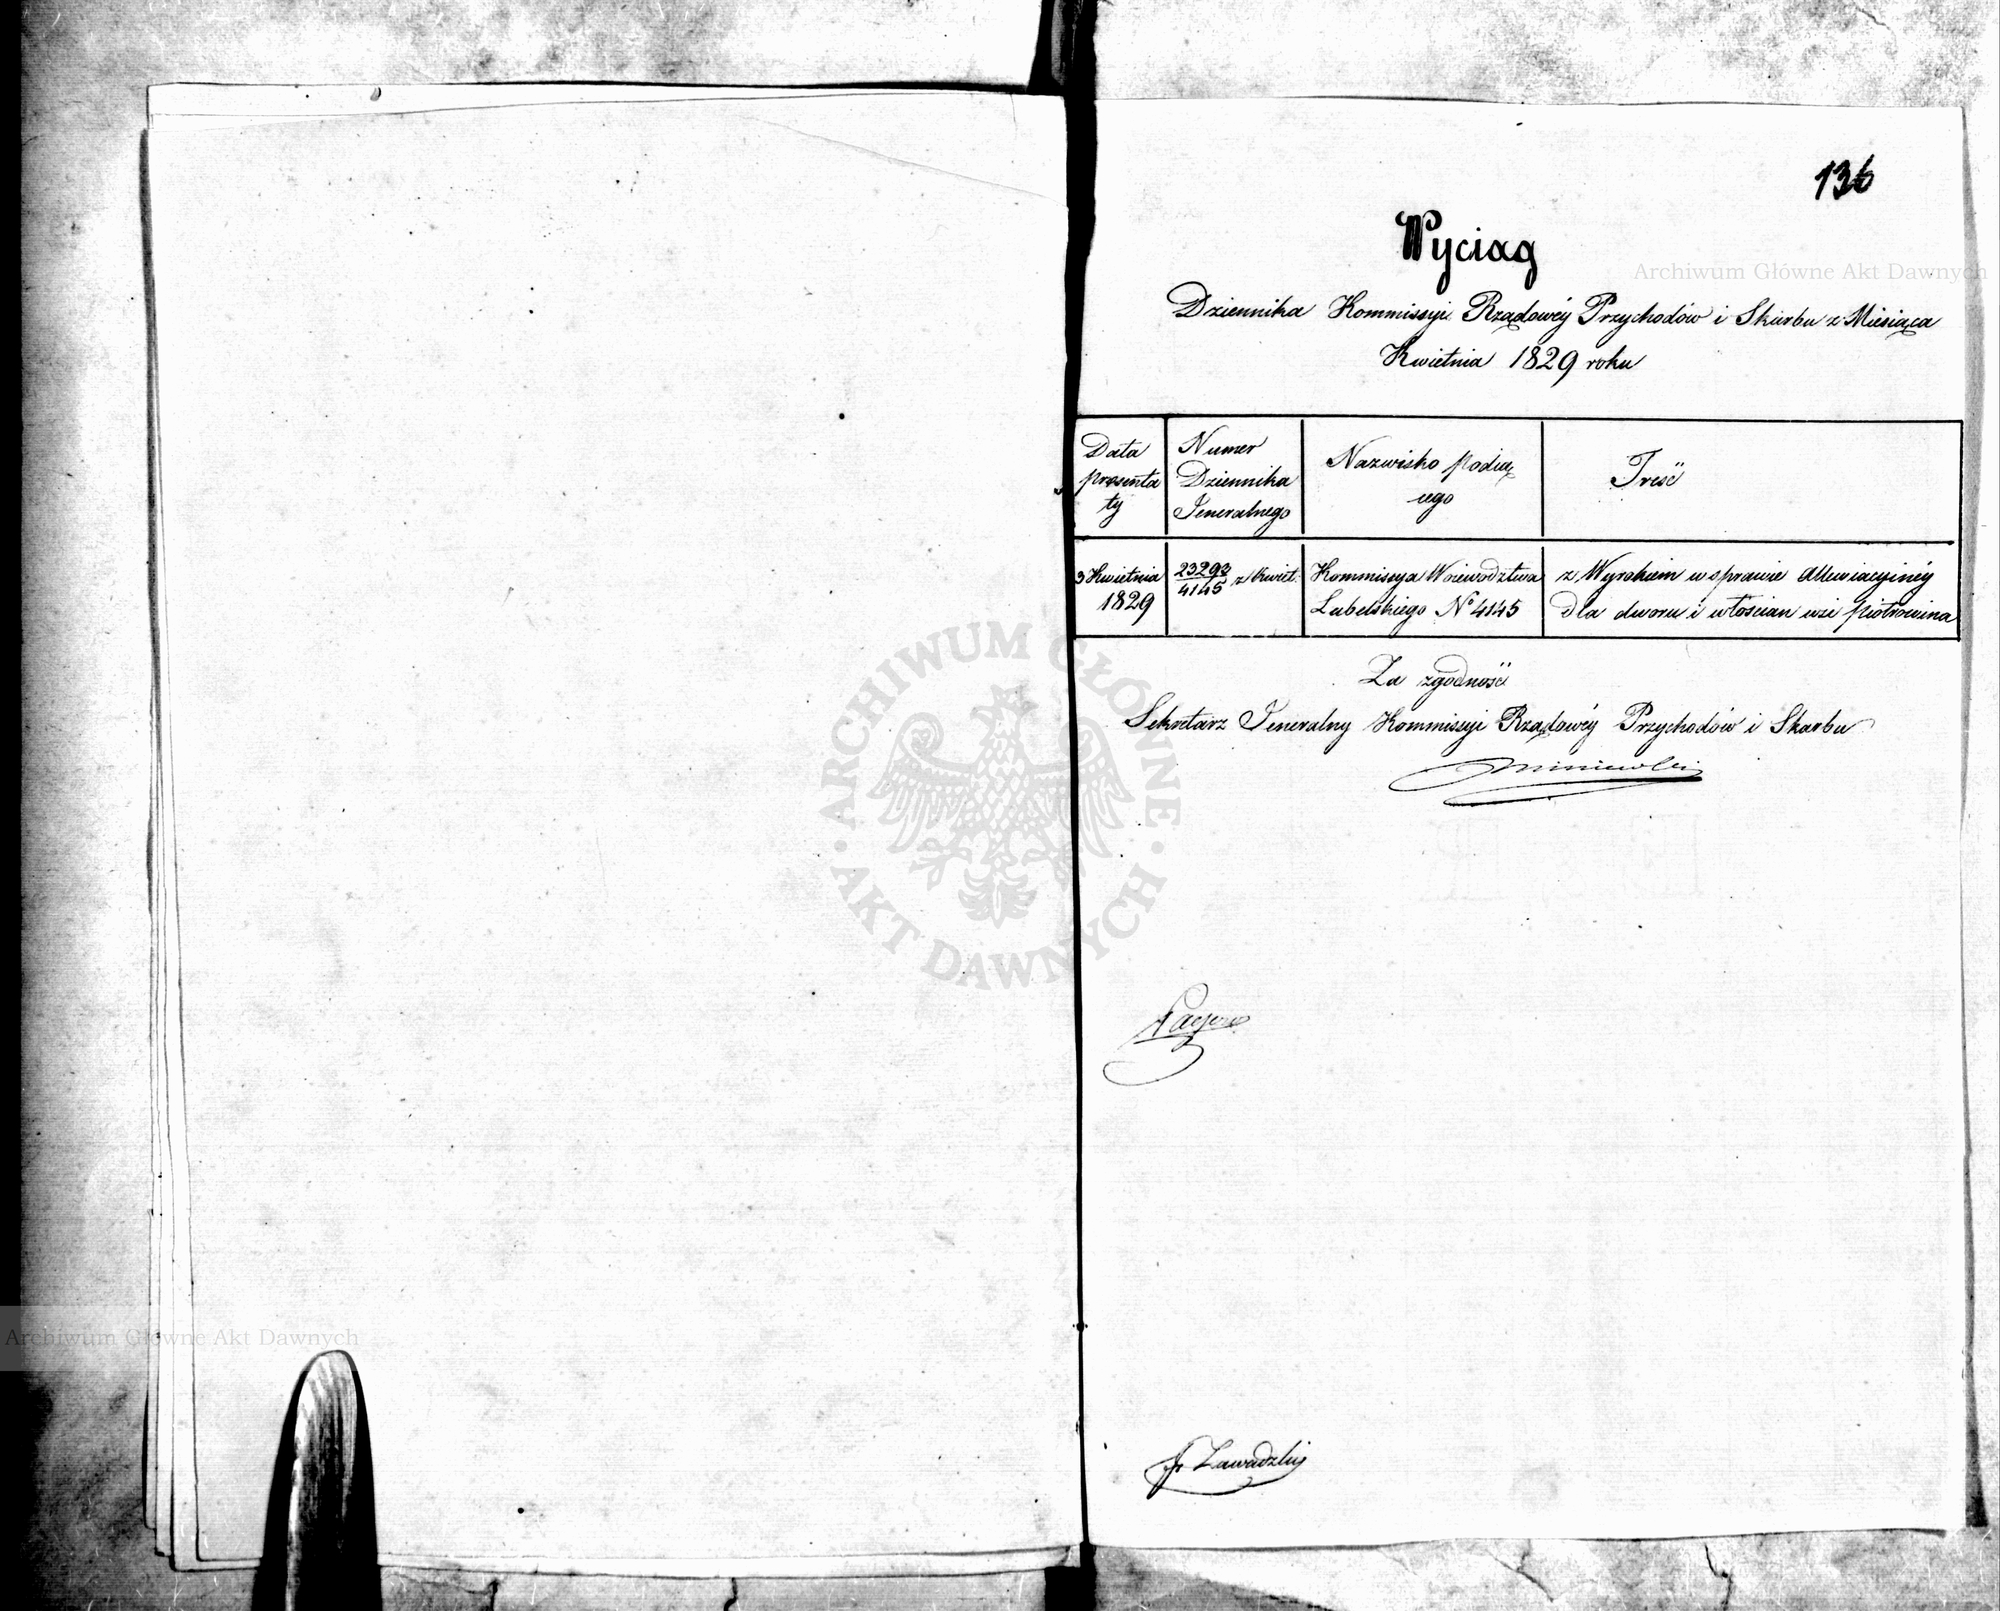 136
Wyciąg
Dziennika Kommissyi Rządowéy Przychodów i Skarbu z Miesiąca
Kwietnia 1829 roku
Data
presenta
ty
Numer
Dziennika
Jeneralnego
Nazwisko podią
cego
Treść
3 Kwietnia
1829
23293
4145 z Kwiet:
Kommissya Woiewodztwa
Lubelskiego No 4145
z Wyrokiem w sprawie Allewiacyinéy
Dla dworu i włościan wsi Piotrowina
Za zgodność
Sekretarz Jeneralny Kommissyi Rządowéy Przychodów i Skarbu
Zawadzki
Archiwum Główne Akt Dawnych
ARCHIWUM GŁÓWNE AKT DAWNYCH
Archiwum Główne Akt Dawnych